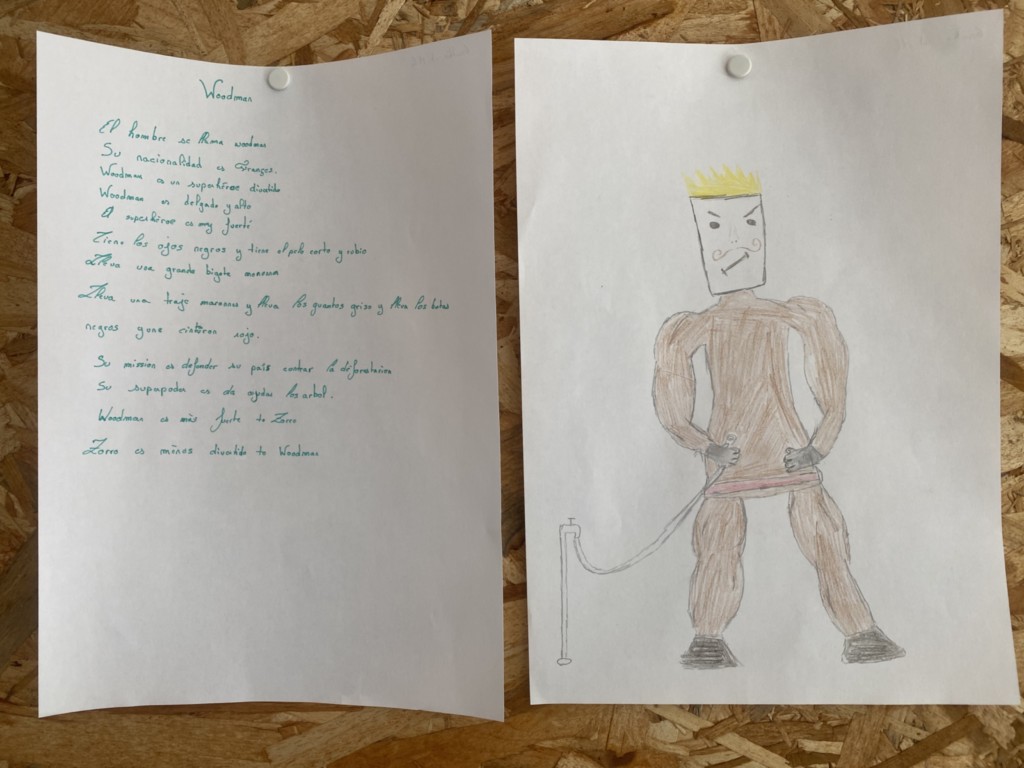 Woodman
El hombre se llama woodman
Su nacionalidad es français.
Woodman es un superhéroe divertido
Woodman es delgado y alto
El superhéroe es muy fuerté
Tiene los ojos negros y tiene el pelo corto y rubio
Lleva una grande bigote
Lleva una traje y lleva los guantes griso y lleva los botas
negras y une cinturon rojo.
Su mission es defender su país contrar la deforestacion
Su superpoder es de ayudar los arbol.
Woodman es màs fuerte te Zorro
Zorro es ménos divertido te Woodman